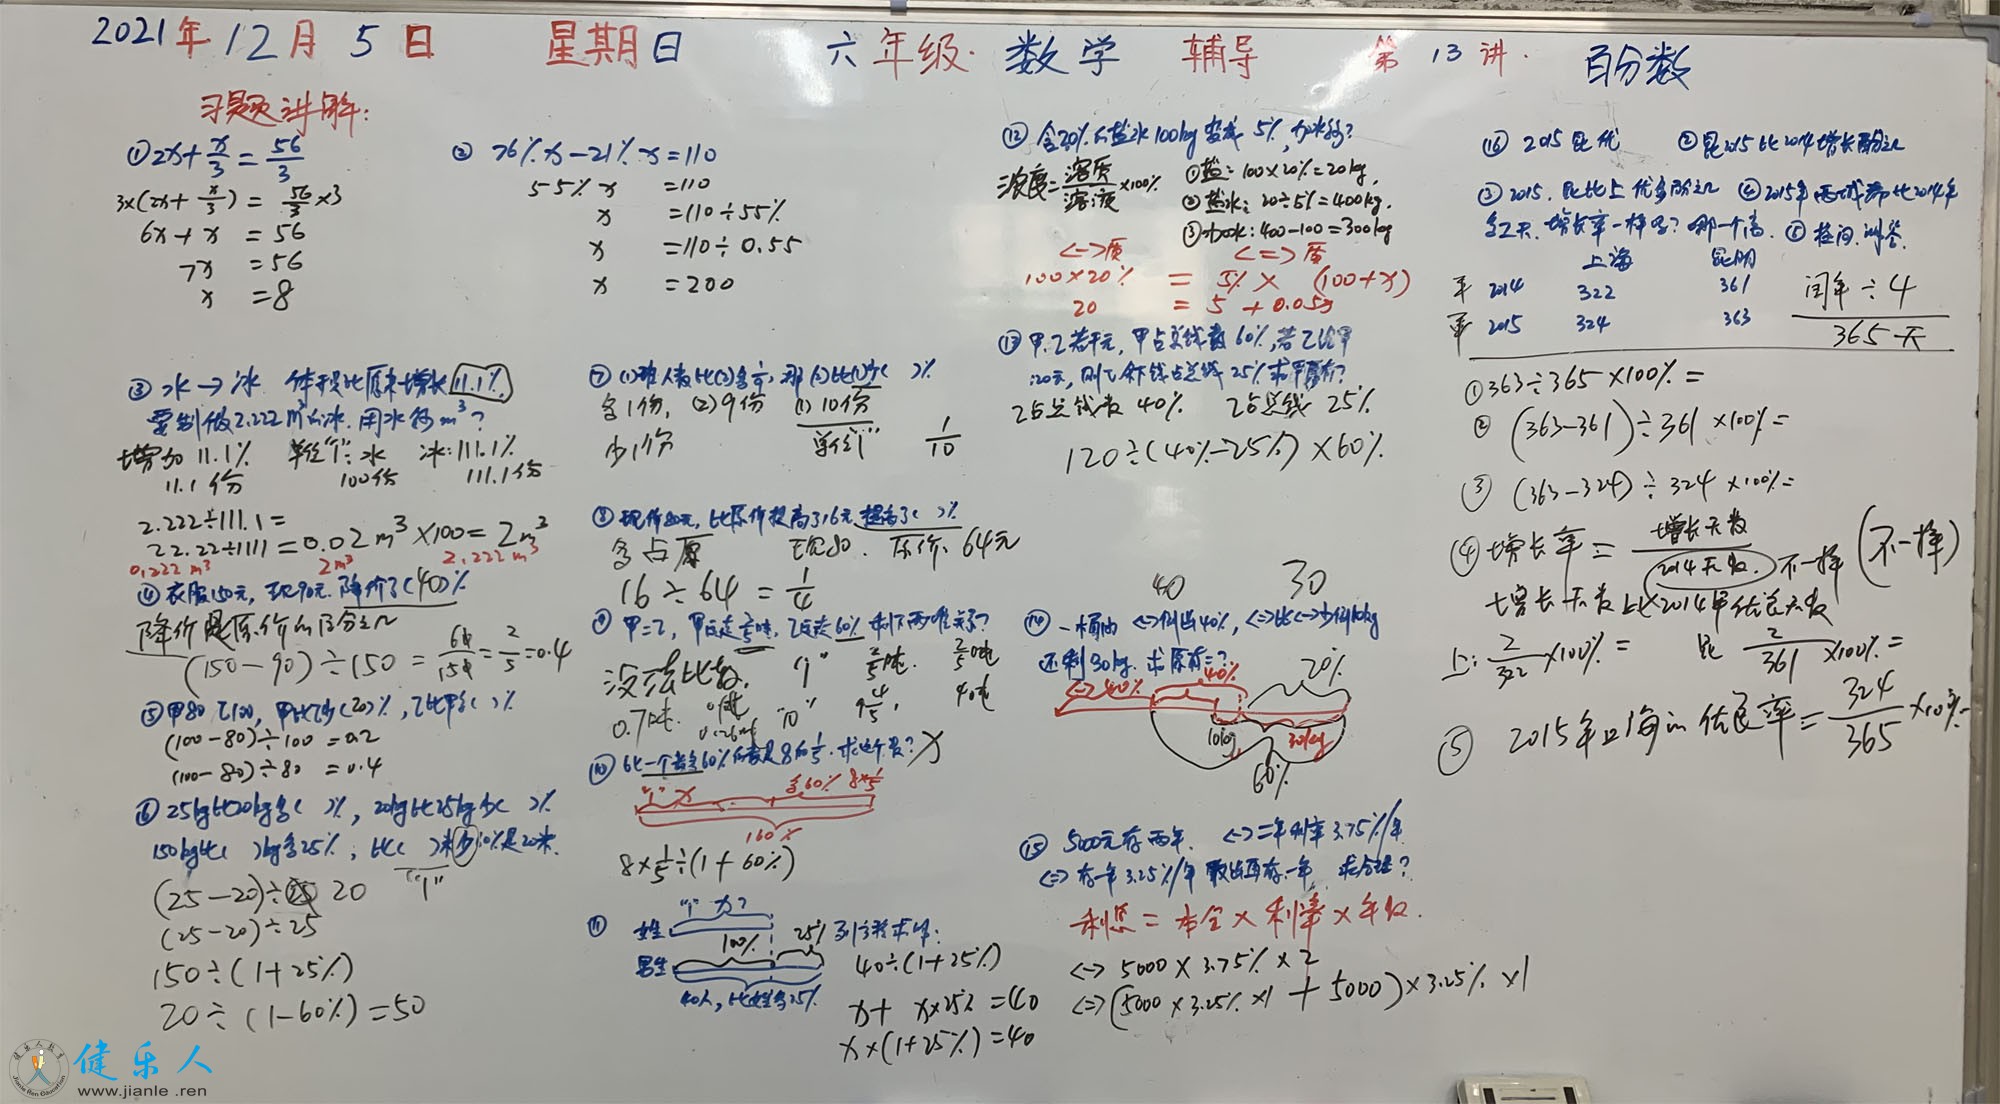 2021年12月5日 星期日 六年级·数学 辅导 第13讲· 百分数
习题讲解:
①2x+x/3=56/3
3×(2x+x/3)=56/3×3
6x+x=56
7x=56
x=8
② 76%x-21%x=110
55%x=110
x=110÷55%
x=110÷0.55
x=200
③水→冰 体积比原来增长11.1%
要制做2.222m³的冰.用水多m³?
增加11.1% 单位"1":水 冰:111.1%
11.1份 100份 111.1份
2.222÷111.1=
22.22÷1111=0.02m³×100=2m³
0.222m³ 2m³ 2.222m³
④衣服150元,现90元.降价了(40)%
降价是原价的百分之几
(150-90)÷150=60/150=2/5=0.4
⑤甲80乙100,甲比乙少(20)%,乙比甲多( )%
(100-80)÷100=0.2
(100-80)÷80=0.4
⑥25kg比20kg多( )%,20kg比25kg少( )%
150kg比( )kg多25%;比( )米少60%是20米.
(25-20)÷20 "1"
(25-20)÷25
150÷(1+25%)
20÷(1-60%)=50
⑦(1)班人数比(2)多1/9,那(2)比(1)少( )%
多1份,(2)9份 (1)10份
少1份 单位"1" 1/10
⑧现价80元,比原价提高了16元,提高了( )%
多占原 现80. 原价.64元
16÷64=1/4
⑨甲=乙,甲
没法比较.
0.7吨.
⑩比一个数多60%的数是8的1/5.求这个数?x
"1" x 多60% 8×1/5
160%
8×1/5÷(1+60%)
⑪ "1" x?
女生
100% 25% 列方程求解:
男生
40人,比女生多25%
40÷(1+25%)
x+x×25%=40
x×(1+25%)=40
⑫含20%的盐水100kg变成5%,加水多?
浓度=溶质/溶液×100%
①盐:100×20%=20kg.
②盐水:20÷5%=400kg.
③加水:400-100=300kg
<一>质 <二>质
100×20% = 5%×(100+x)
20 = 5+0.05x
⑬甲.乙若干元,甲占总钱数60%,若乙给甲
120元,则乙余钱占总钱25%求甲原有?
乙占总钱数40% 乙占总钱25%
120÷(40%-25%)×60%
40 30
⑭一桶油<一>倒出40%,<二>比<一>少倒10kg
还剩30kg.求原有=?
<一>40% 40% 20%
10kg 30kg
60%
⑮5000元存两年. <一>二年利率3.75%/年
<二>存一年3.25%/年取出再存一年.
利息=本金×利率×年数.
<一>5000×3.75%×2
<二>(5000×3.25%×1+5000)×3.25%×1
⑯2015昆优 ②昆2015比2014增长百分之几
③2015.昆比上优多百分之几 ④2015年两城都比2014年
多2天.增长率一样吗?哪一个高.⑤提问.解答.
上海 昆明
平 2014 322 361
平 2015 324 363
闰年÷4
365天
①363÷365×100%=
②(363-361)÷361×100%=
③(363-324)÷324×100%=
④增长率=增长天数/2014天数 不一样(不一样)
增长天数比2014年优总天数
上:2/322×100%= 昆2/361×100%=
⑤2015年上海的优良率=324/365×100%=
健乐人教育
Jianle Ren Education
健乐人
www.jianle.ren